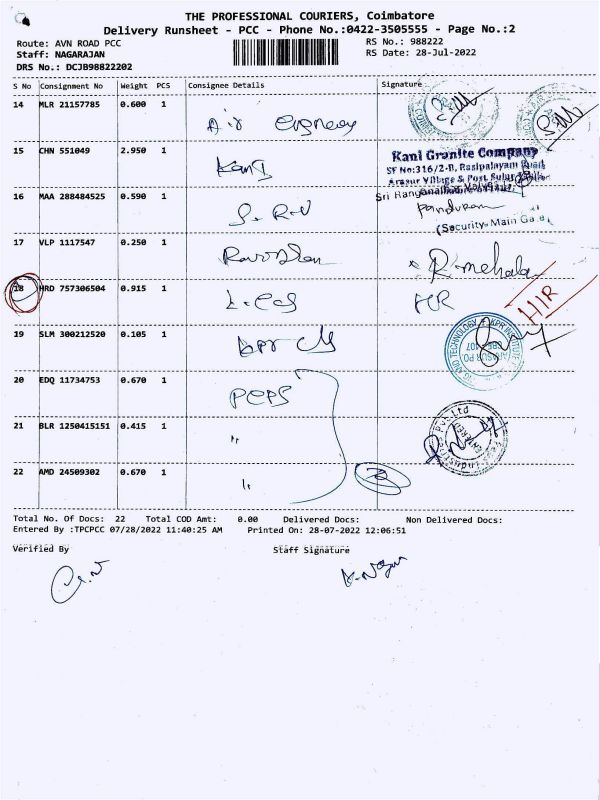 THE PROFESSIONAL COURIERS, Coimbatore
Delivery Runsheet - PCC - Phone No.:0422-3505555 - Page No.:2
Route: AVN ROAD PCC
RS No.: 988222
Staff: NAGARAJAN
RS Date: 28-Jul-2022
DRS No.: DCJB98822202
S No Consignment No Weight PCS Consignee Details Signature
14 MLR 21157785 0.600 1
Air
15 CHN 551049 2.950 1
Kani
Kani Granite Company
SF No:316/2-B, Rasipalayam Road
Arasur Village & Post, Sulur
16 MAA 288484525 0.590 1
S.R.V
(Security- Main Gate)
17 VLP 1117547 0.250 1
R. mehala
18 HRD 757306504 0.915 1
HR
HIR
19 SLM 300212520 0.105 1
KPR
AND TECHNOLOGY * KPR
20 EDQ 11734753 0.670 1
PEPS
21 BLR 1250415151 0.415 1
"
22 AMD 24509302 0.670 1
"
Total No. Of Docs: 22 Total COD Amt: 0.00 Delivered Docs: Non Delivered Docs:
Entered By :TPCPCC 07/28/2022 11:40:25 AM Printed On: 28-07-2022 12:06:51
Verified By Staff Signature